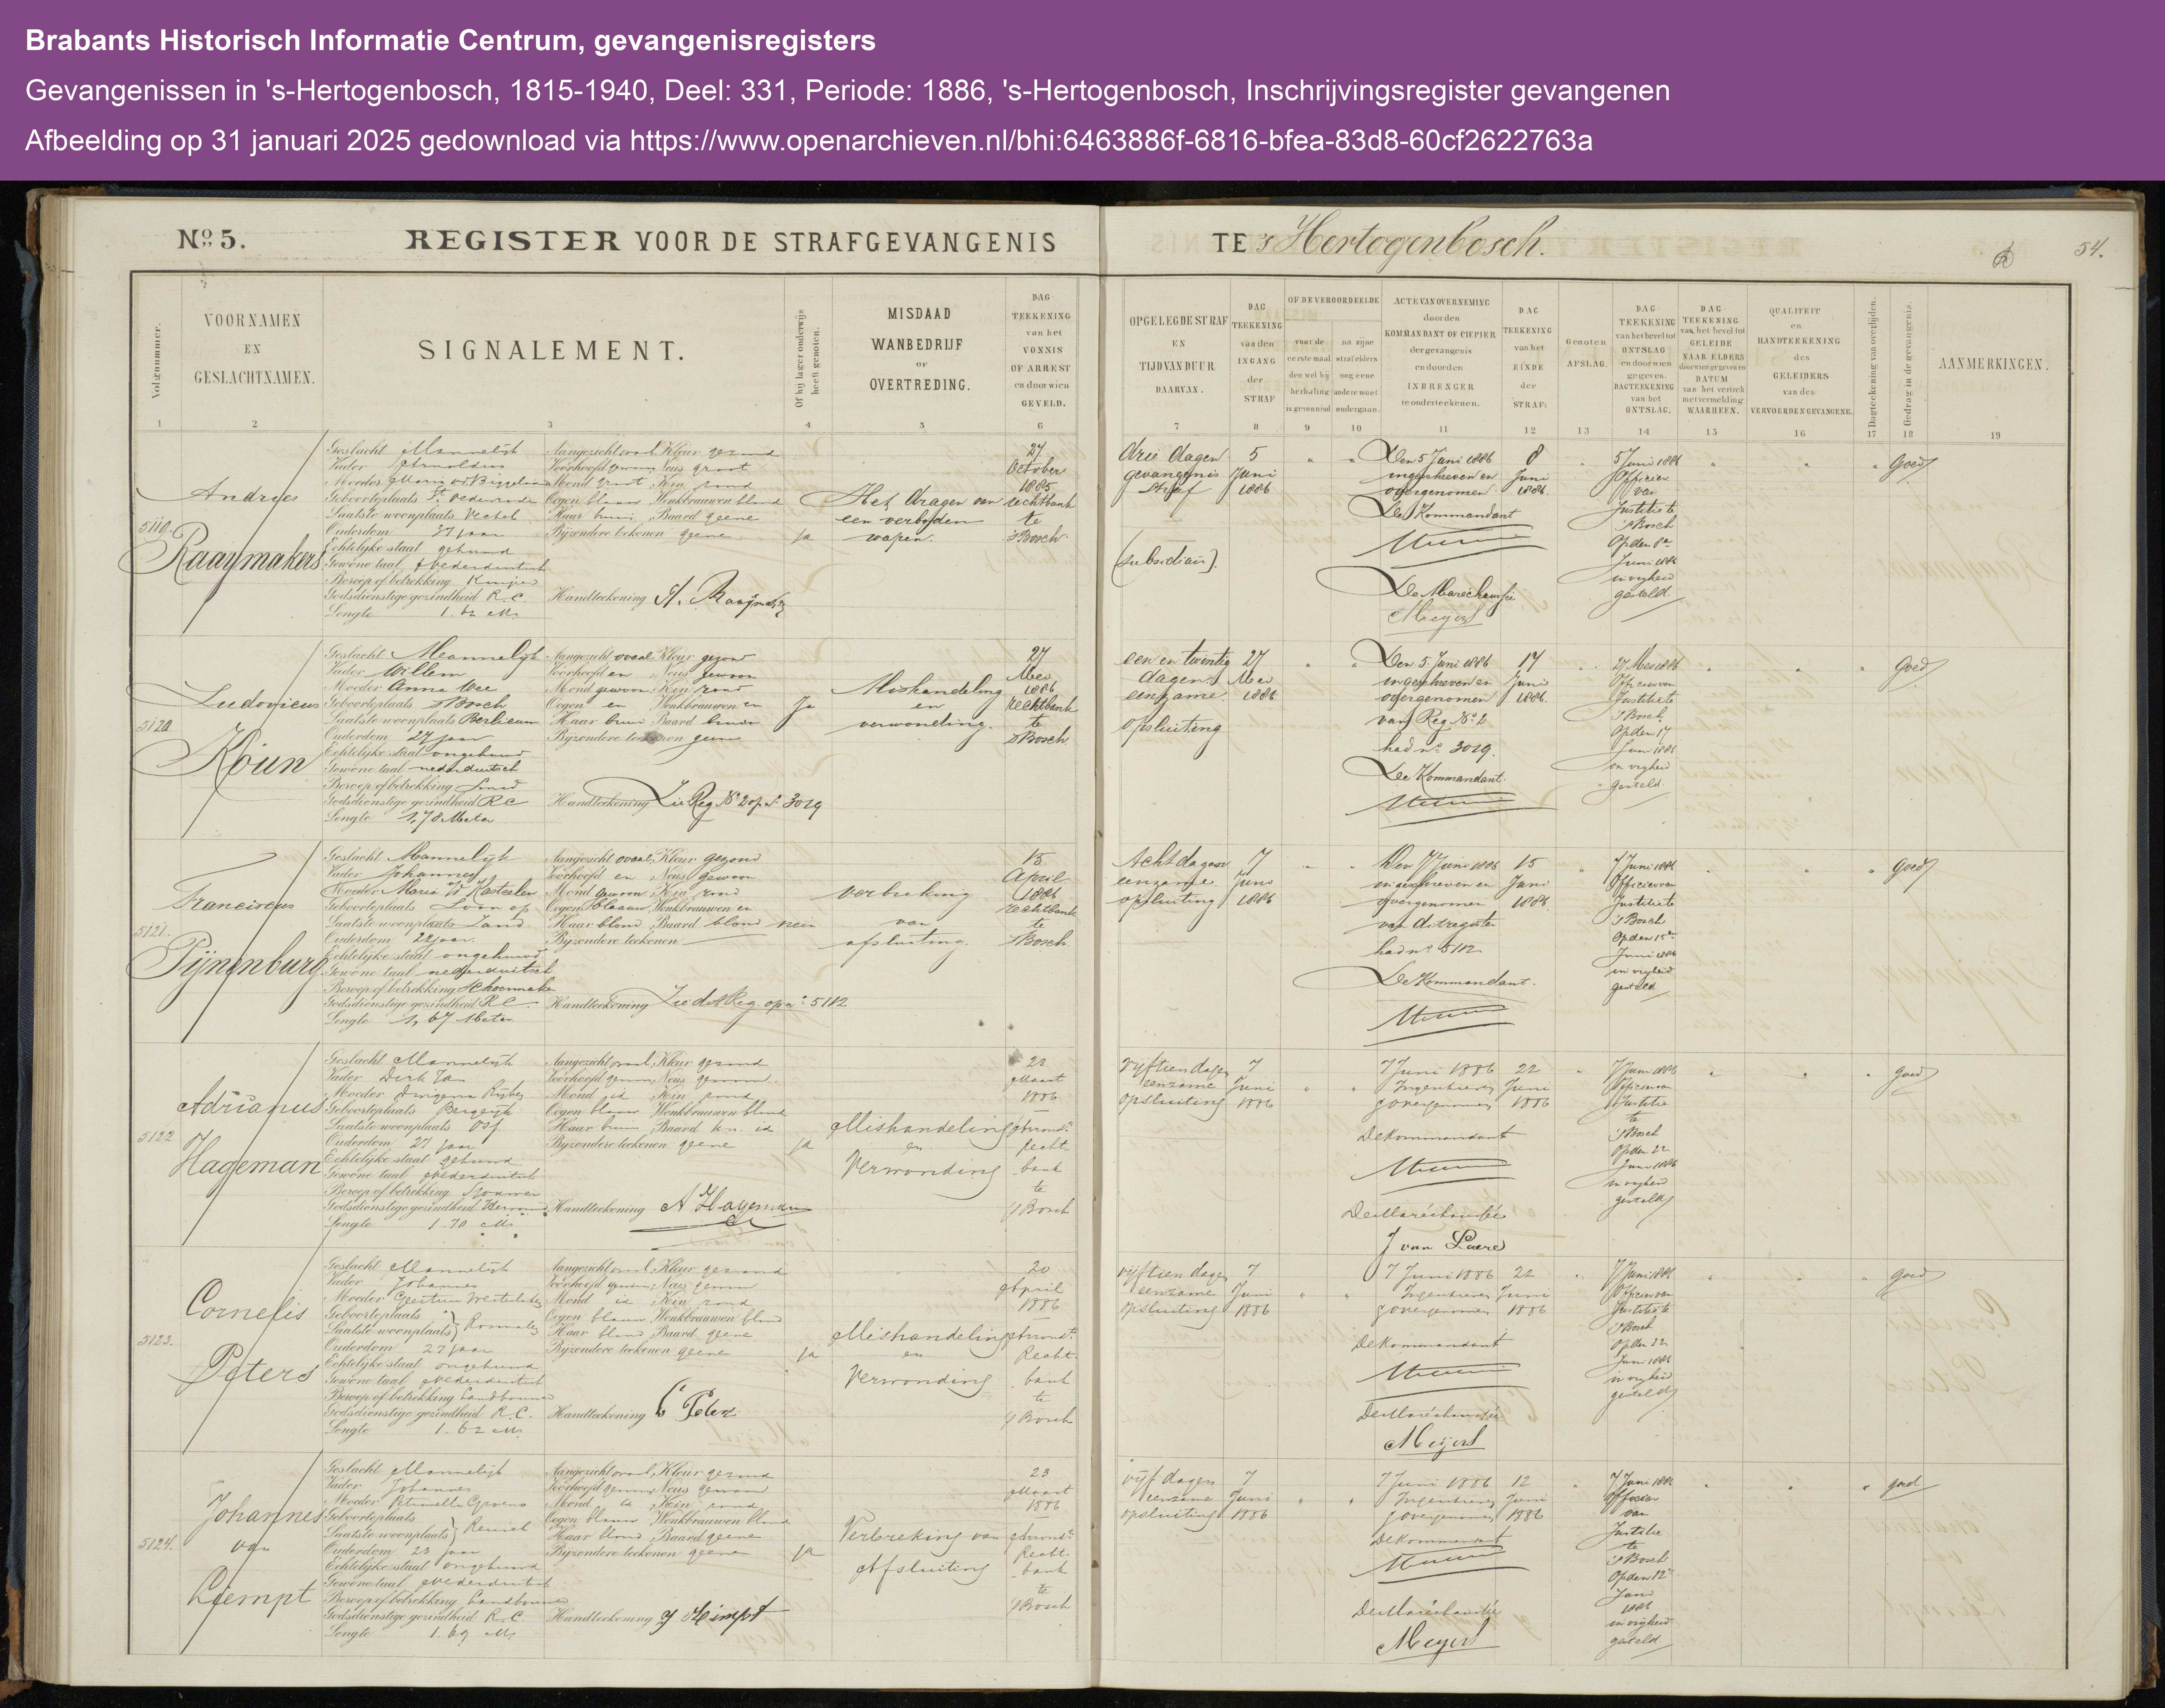 Brabants Historisch Informatie Centrum, gevangenisregisters
Gevangenissen in 's-Hertogenbosch, 1815-1940, Deel: 331, Periode: 1886, 's-Hertogenbosch, Inschrijvingsregister gevangenen
Afbeelding op 31 januari 2025 gedownload via https://www.openarchieven.nl/bhi:6463886f-6816-bfea-83d8-60cf2622763a
No 5. REGISTER VOOR DE STRAFGEVANGENIS TE 's Hertogenbosch.
54.
Volgnummer.
VOORNAMEN
EN
GESLACHTNAMEN.
SIGNALEMENT.
Of hij lager onderwijs
heeft genoten.
MISDAAD
WANBEDRIJF
OF
OVERTREDING.
DAG
TEEKENING
van het
VONNIS
OF ARREST
en door wien
GEVELD.
OPGELEGDE STRAF
EN
TIJD VAN DUUR
DAARVAN.
DAG
TEEKENING
van den
INGANG
der
STRAF
OF DE VEROORDEELDE
voor de
eerste maal
dan wel bij
herhaling
is gevonnisd
na zijne
straf elders
nog eene
andere moet
ondergaan.
ACTE VAN OVERNEMING
door den
KOMMANDANT OF CIPIER
der gevangenis
en door den
INBRENGER
te onderteekenen.
DAG
TEEKENING
van het
EINDE
der
STRAF.
Genoten
AFSLAG.
DAG
TEEKENING
van het bevel tot
ONTSLAG
en door wien
gegeven.
DAGTEEKENING
van het
ONTSLAG.
DAG-
TEEKENING
van het bevel tot
GELEIDE
NAAR ELDERS
door wien gegeven en
DATUM
van het vertrek
met vermelding
WAARHEEN.
QUALITEIT
en
HANDTEEKENING
des
GELEIDERS
van den
VERVOERDEN GEVANGENE.
Dagteekening van overlijden.
Gedrag in de gevangenis.
AANMERKINGEN.
1 2 3 4 5 6 7 8 9 10 11 12 13 14 15 16 17 18 19
5119.
Andries
Raaymakers
Geslacht Mannelijk
Vader Arnoldus
Moeder Maria
Geboorteplaats St Oedenrode
Laatste woonplaats Vechel
Ouderdom 37 jaar
Echtelijke staat gehuwd
Gewone taal Nederduitsch
Beroep of betrekking Kuiper
Godsdienstige gezindheid R.C.
Lengte 1.62 M.
Aangezicht ovaal Kleur gezond
Voorhoofd gewoon Neus groot
Mond groot Kin rond
Oogen blauw Wenkbrauwen blond
Haar bruin Baard geene
Bijzondere teekenen geene
Handteekening A. Raaymakers
ja
Het dragen van
een verboden
wapen.
27
October
1885
rechtbank
te
'sBosch
drie dagen
gevangenis
straf
(subsidiair).
5
Juni
1886
Den 5 Juni 1886
ingeschreven en
overgenomen
De Kommandant
De Marechaussee
Meyers
8
Juni
1886.
5 Juni 1886
Officier
van
Justitie te
'sBosch
Op den 8e
Juni 1886
in vrijheid
gesteld.
Goed
5120.
Ludovicus
Koun
Geslacht Mannelijk
Vader Willem
Moeder Anna
Geboorteplaats 'sBosch
Laatste woonplaats Berlicum
Ouderdom 27 jaar
Echtelijke staat ongehuwd
Gewone taal nederduitsch
Beroep of betrekking Smid
Godsdienstige gezindheid RC
Lengte 1,78 Meter
Aangezicht ovaal Kleur gezond
Voorhoofd en Neus gewoon
Mond gewoon Kin rond
Oogen en Wenkbrauwen en
Haar bruin Baard bruin
Bijzondere teekenen geene
Handteekening Zie Reg. No 2 op no 3019
Ja
Mishandeling
en
verwonding.
27
Mei
1886
rechtbank
te
'sBosch
een en twintig
dagen
eenzame
opsluiting
27
Mei
1886
Den 5 Juni 1886
ingeschreven en
overgenomen
van Reg No 2
had no 3019.
De Kommandant.
17
Juni
1886.
27 Mei 1886
Officier van
Justitie te
'sBosch.
Op den 17
Juni 1886
in vrijheid
gesteld.
Goed
5121.
Franciscus
Pijnenburg
Geslacht Mannelijk
Vader Johannes
Moeder Maria v Kasteren
Geboorteplaats Loon op
Laatste woonplaats Zand
Ouderdom 22 jaar.
Echtelijke staat ongehuwd
Gewone taal nederduitsch
Beroep of betrekking Schoenmaker
Godsdienstige gezindheid RC
Lengte 1,67 Meter
Aangezicht ovaal Kleur gezond
Voorhoofd en Neus gewoon
Mond gewoon Kin rond
Oogen blauw Wenkbrauwen en
Haar blond Baard blond
Bijzondere teekenen
Handteekening Zie dit Reg. op no 5112
neen
verbreking
van
afsluiting.
15
April
1886
rechtbank
te
'sBosch
Acht dagen
eenzame
opsluiting
7
Juni
1886
Den 7 Juni 1886
ingeschreven en
overgenomen
van dit register
had no 5112
De Kommandant.
15
Juni
1886.
7 Juni 1886
Officier van
Justitie te
'sBosch
Op den 15e
Juni 1886
in vrijheid
gesteld
Goed
5122
Adrianus
Hageman
Geslacht Mannelijk
Vader Dirk Jan
Moeder
Geboorteplaats
Laatste woonplaats Osf
Ouderdom 27 jaar
Echtelijke staat gehuwd
Gewone taal Nederduitsch
Beroep of betrekking
Godsdienstige gezindheid Hervormd
Lengte 1.70 M.
Aangezicht ovaal Kleur gezond
Voorhoofd gewoon Neus gewoon
Mond id Kin rond
Oogen blauw Wenkbrauwen blond
Haar bruin Baard kn. id
Bijzondere teekenen geene
Handteekening A Hageman
ja
Mishandeling
en
Verwonding
23
Maart
1886
Arrond.
Recht-
bank
te
'sBosch
vijftien dagen
eenzame
opsluiting
7
Juni
1886
7 Juni 1886
Ingeschreven
& overgenomen
De Kommandant
De Maréchaussée
J van Laere
22
Juni
1886
7 Juni 1886
Officier van
Justitie
te
'sBosch
Op den 22
Juni 1886
in vrijheid
gesteld
goed
5123.
Cornelis
Peters
Geslacht Mannelijk
Vader Johannes
Moeder
Geboorteplaats
Laatste woonplaats Rosmalen
Ouderdom 27 jaar
Echtelijke staat ongehuwd
Gewone taal Nederduitsch
Beroep of betrekking Landbouwer
Godsdienstige gezindheid R.C.
Lengte 1.62 M.
Aangezicht ovaal Kleur gezond
Voorhoofd gewoon Neus gewoon
Mond id Kin rond
Oogen blauw Wenkbrauwen blond
Haar blond Baard geene
Bijzondere teekenen geene
Handteekening C Peters
ja
Mishandeling
en
Verwonding
20
April
1886
Arrond.
Recht-
bank
te
'sBosch
vijftien dagen
eenzame
opsluiting
7
Juni
1886
7 Juni 1886
Ingeschreven
& overgenomen
De Kommandant
De Maréchaussée
Meyers
22
Juni
1886
7 Juni 1886
Officier van
Justitie te
'sBosch
Op den 22
Juni 1886
in vrijheid
gesteld
goed
5124.
Johannes
van
Liempt
Geslacht Mannelijk
Vader Johannes
Moeder Petronella
Geboorteplaats
Laatste woonplaats Reusel
Ouderdom 23 jaar
Echtelijke staat ongehuwd
Gewone taal Nederduitsch
Beroep of betrekking Landbouwer
Godsdienstige gezindheid R.C.
Lengte 1.69 M.
Aangezicht ovaal Kleur gezond
Voorhoofd gewoon Neus gewoon
Mond id Kin rond
Oogen blauw Wenkbrauwen blond
Haar blond Baard geene
Bijzondere teekenen geene
Handteekening J Liempt
ja
Verbreking van
Afsluiting
23
Maart
1886
Arrond.
Recht-
bank
te
'sBosch
vijf dagen
eenzame
opsluiting
7
Juni
1886
7 Juni 1886
Ingeschreven
& overgenomen
De Kommandant
De Maréchaussée
Meyers
12
Juni
1886
7 Juni 1886
Officier
van
Justitie
te
'sBosch
Op den 12e
Juni
1886
in vrijheid
gesteld
goed